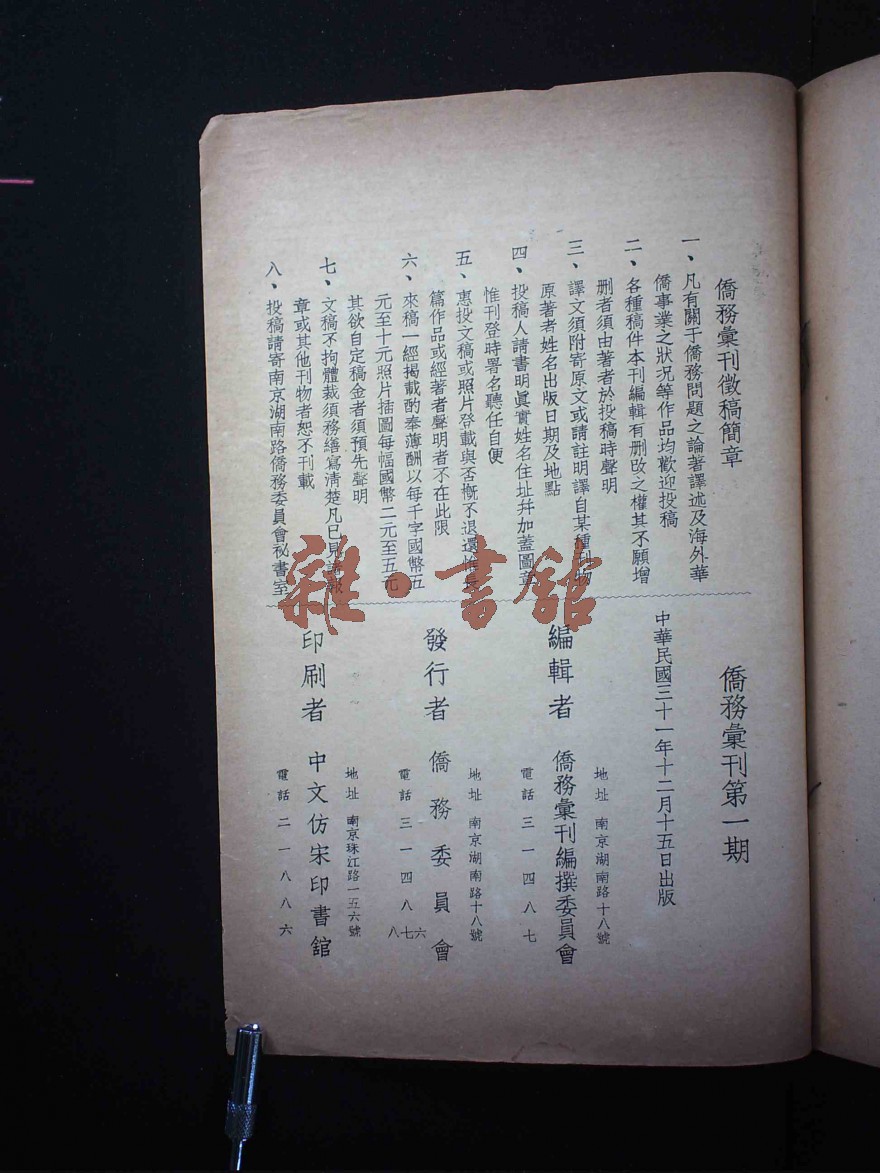 僑務彙刊徵稿簡章
一、凡有關于僑務問題之論著譯述及海外華
僑事業之狀況等作品均歡迎投稿
二、各種稿件本刊編輯有删改之權其不願增
删者須由著者於投稿時聲明
三、譯文須附寄原文或請註明譯自某種刊物
原著者姓名出版日期及地點
四、投稿人請書明眞實姓名住址幷加蓋圖章
惟刊登時署名聽任自便
五、惠投文稿或照片登載與否槪不退還惟長
篇作品或經著者聲明者不在此限
六、來稿一經揭載酌奉薄酬以每千字國幣五
元至十元照片插圖每幅國幣二元至五元
其欲自定稿金者須預先聲明
七、文稿不拘體裁須務繕寫清楚凡已見諸報
章或其他刊物者恕不刊載
八、投稿請寄南京湖南路僑務委員會祕書室
僑務彙刊第一期
中華民國三十一年十二月十五日出版
編輯者 僑務彙刊編撰委員會
地址 南京湖南路十八號
電話 三一四八七
發行者 僑務委員會
地址 南京湖南路十八號
電話 三一四八 六七八
印刷者 中文仿宋印書館
地址 南京珠江路一五六號
電話 二一八八六
雜·書館